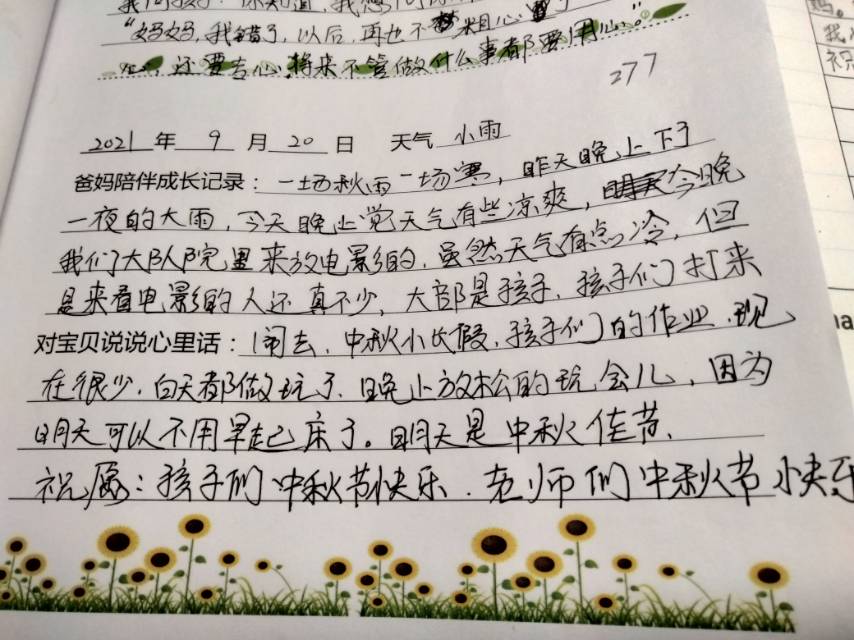 "妈妈,我错了,以后,再也不粗心了"
心,还要专心,将来不管做什么事都要用心。
277
2021 年 9 月 20 日 天气 小雨
爸妈陪伴成长记录:一场秋雨一场寒,昨天晚上下了
一夜的大雨,今天晚上觉天气有些凉爽,今晚
我们大队院里来放电影的,虽然天气有点冷,但
是来看电影的人还真不少,大部是孩子,孩子们打来
对宝贝说说心里话:闹去,中秋小长假,孩子们的作业,现
在很少,白天都做玩了,晚上放松的玩会儿,因为
明天可以不用早起床了。明天是中秋佳节、
祝愿:孩子们中秋节快乐.老师们中秋节快乐